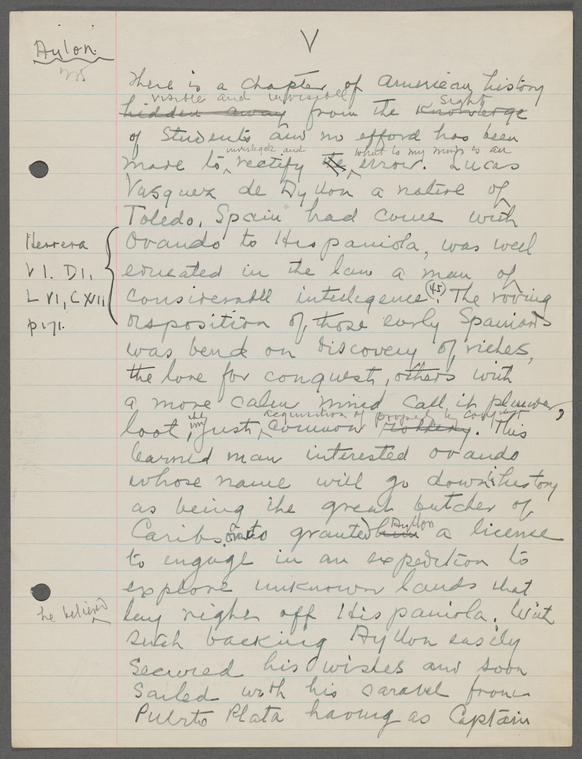 V
Aylon.
There is a chapter of American history
visible and invisible
hidden away from the knowledge
sight
of Students and no efford has been
investigate and what to my mind is an
made to rectify the error. Lucas
Vasquez de Ayllon a native of
Toledo, Spain had come with
Herrera
Ovando to Hispaniola, was well
V I. D I,
educated in the law a man of
L VI, C XII,
considerable intelegence (45). The roving
p 171.
disposition of those early Spaniards
was bend on discovery of riches,
the love for conquest, others with
a more calm mind call it plunder,
acquisition of
loot, just common robbery. This
learned man interested Ovando
whose name will go down in history
as being the great butcher of
Caribs, granted him a license
Ayllon
to engage in an expedition to
explore unknown lands that
he believed
lay nigher off Hispaniola. With
such backing Ayllon easily
Secured his wishes and soon
Sailed with his caravel from
Puerto Plata having as Captain